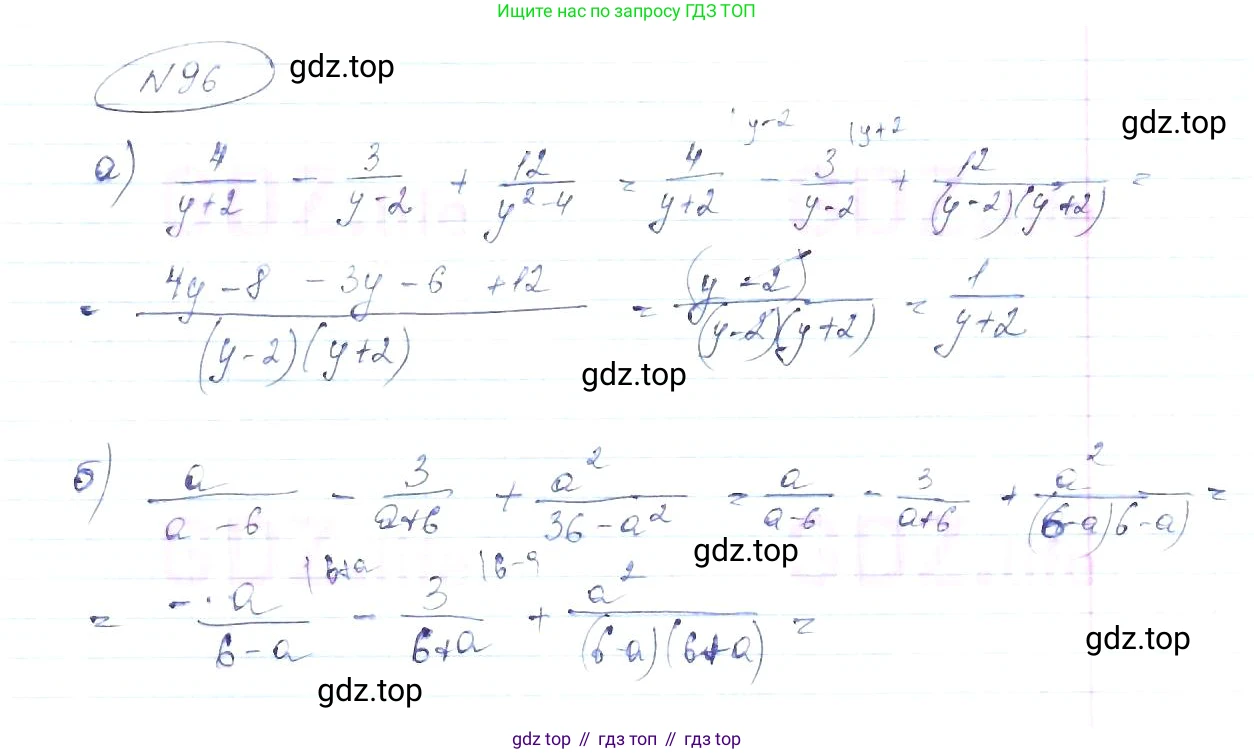 Ищите нас по запросу ГДЗ ТОП
N96 gdz.top
gdz.top
y-2 |y+2
а) 4/(y+2) - 3/(y-2) + 12/(y²-4) = 4/(y+2) - 3/(y-2) + 12/((y-2)(y+2)) =
= (4y-8 -3y-6 +12)/((y-2)(y+2)) = (y-2)/((y-2)(y+2)) = 1/(y+2)
gdz.top
б) a/(a-6) - 3/(a+6) + a²/(36-a²) = a/(a-6) - 3/(a+6) + a²/((6-a)(6-a)) =
gdz.top
|6+a |6-a
= -a/(6-a) - 3/(6+a) + a²/((6-a)(6+a)) =
gdz.top
gdz.top
gdz.top // гдз топ // гдз.top